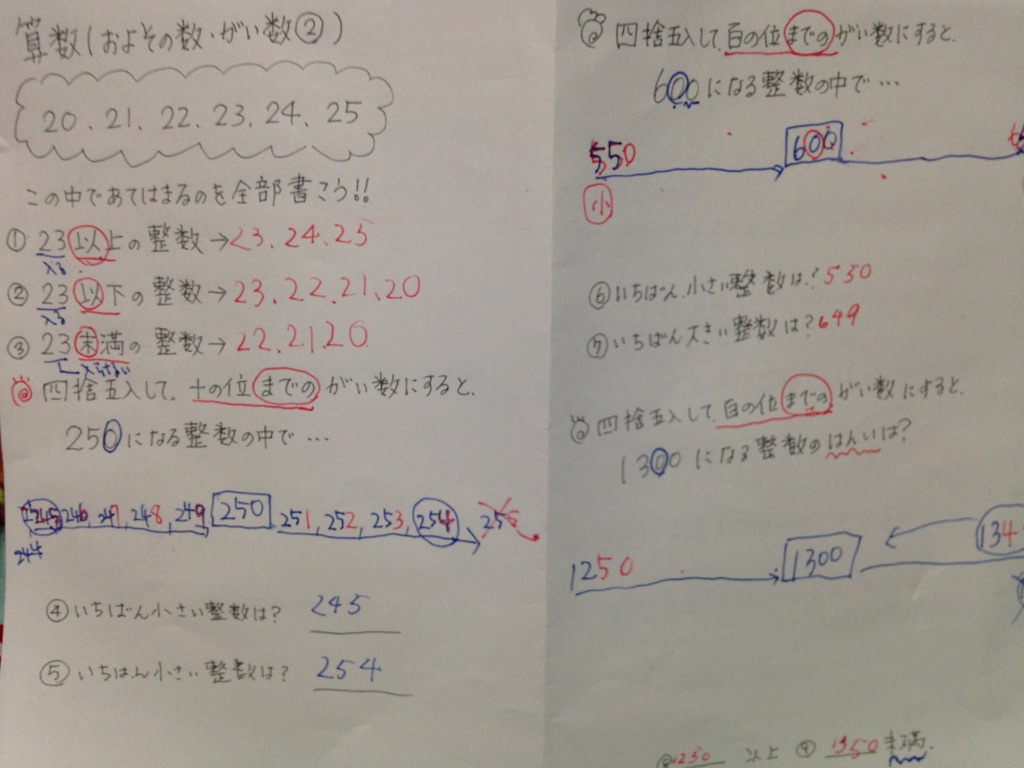 算数(およその数・がい数②)
20、21、22、23、24、25
この中であてはまるのを全部書こう!!
① 23以上の整数→23.24.25
入る
② 23以下の整数→23、22、21、20
入る
③ 23未満の整数→22、21、20
入らない
四捨五入して、十の位までのがい数にすると、
250になる整数の中で…
245 246, 247, 248, 249 250 251, 252, 253, 254 255
244
④いちばん小さい整数は? 245
⑤いちばん小さい整数は? 254
四捨五入して、百の位までのがい数にすると、
600になる整数の中で…
550 600
小
⑥いちばん小さい整数は?550
⑦いちばん大きい整数は?649
四捨五入して、百の位までのがい数にすると、
1300になる整数のはんいは?
1250 1300 134
1250 以上 ⑨ 1350未満.